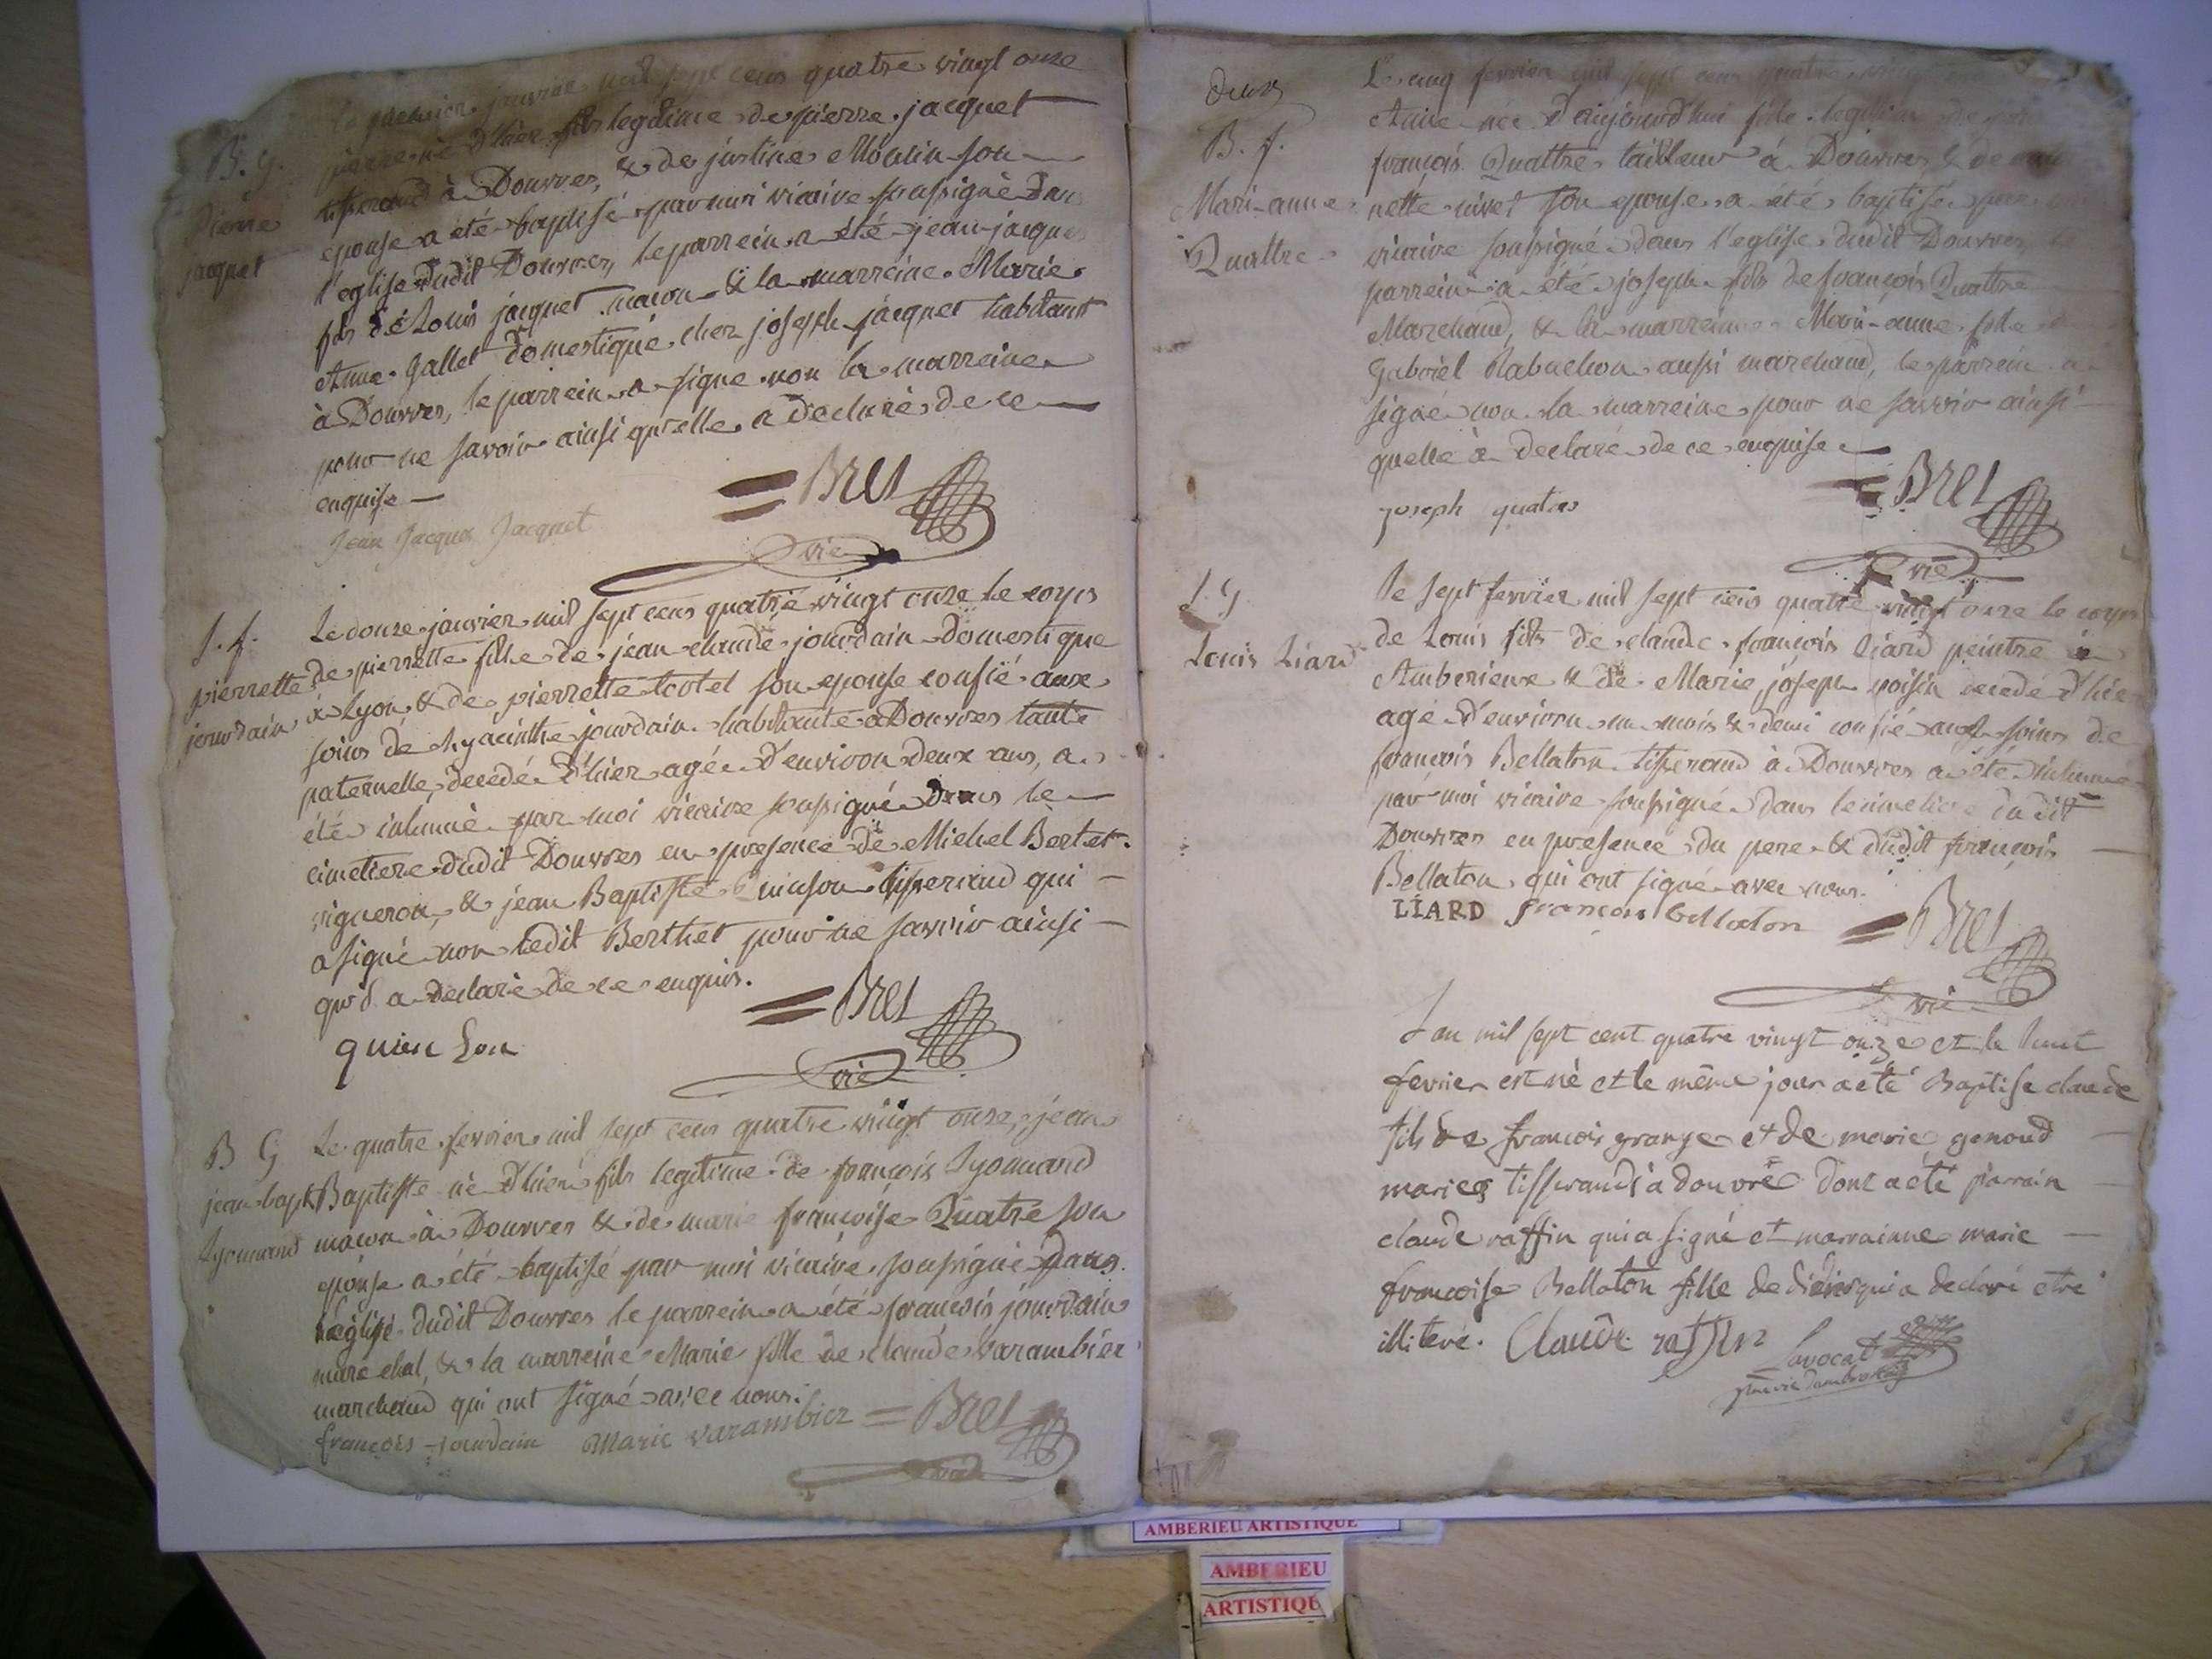 Le premier janvier mil sept cens quatre vingt onze
B. g. pierre né d'hier fils legitime de pierre jacquet
pierre tisserand à Douvres, & de justine Moulin son
jacquet epouse a été baptisé par moi vicaire soussigné dans
l'eglise dudit Douvres, le parrein a été jean-jacques
fils de Louis jacquet macon & la marreine Marie
Anne Gallet domestique chez joseph jacquet habitant
à Douvres, le parrein a signe non la marreine
pour ne savoir ainsi qu'elle a declaré de ce
enquise
= Bret
Jean Jacques Jacquet
vic
S. f. Le douze janvier mil sept cens quatre vingt onze le corps
pierrette de pierrette fille de jean claude jourdain domestique
jourdain à Lyon & de pierrette tortet son epouse confié aux
soins de hyacinthe jourdain habitante à Douvres tante
paternelle, decedé d'hier agée d'environ deux ans, a
été inhumé par moi vicaire soussigné dans le
cimetiere dudit Douvres en presence de Michel Bertet
vigneron, & jean Baptiste tisserand qui
a signé non ledit Berthet pour ne savoir ainsi
qu'il a declaré de ce enquis.
= Bret
quien Son
vic
B G Le quatre fevrier mil sept cens quatre vingt onze, jean
jean bapt Baptiste né d'hier fils legitime de françois Lyonnard
Lyonnard macon à Douvres & de marie françoise Quatre son
epouse a été baptisé par moi vicaire soussigné dans
l'eglise dudit Douvres le parrein a été françois jourdain
marechal, & la marreine Marie fille de claude varambier
marchand qui ont signé avec nous.
françois jourdain Marie varambier = Bret
vic
deux
Le cinq fevrier mil sept cens quatre vingt
B. f. Anne née d'aujourd'hui fille legitime de
françois Quattre tailleur à Douvres, & de
Mari-anne nette nivet son epouse a été baptisée par
Quattre vicaire soussigné dans l'eglise dudit Douvres, le
parrein a été joseph fils de françois Quattre
Marchand, & la marreine Mari-anne fille
Gabriel Rabuchon aussi marchand, le parrein a
signé non la marreine pour ne savoir ainsi
quelle à declaré de ce enquise
= Bret
joseph quatre
vic
S. G. Le sept fevrier mil sept cens quatre vingt onze le corps
Louis Liard de Louis fils de claude françois Liard peintre à
Amberieux & de Marie joseph voisin decedé d'hier
agé d'environ un mois & demi confié aux soins de
françois Bellaton tisserand à Douvres a été inhumé
par moi vicaire soussigné dans le cimetiere dudit
Douvres en presence du pere & dudit françois
Bellaton qui ont signé avec nous.
LIARD françois bellaton = Bret
vic
L'an mil sept cent quatre vingt onze et le huit
fevrier est né et le même jour a été Baptise claude
fils de francois grange et de marie genoud
maries tisserands a douvre dont a été parrain
claude raffin qui a signé et marrainne marie
francoise Bellaton fille de didier qui a declaré etre
illiteré. Claude raffin Lavocat